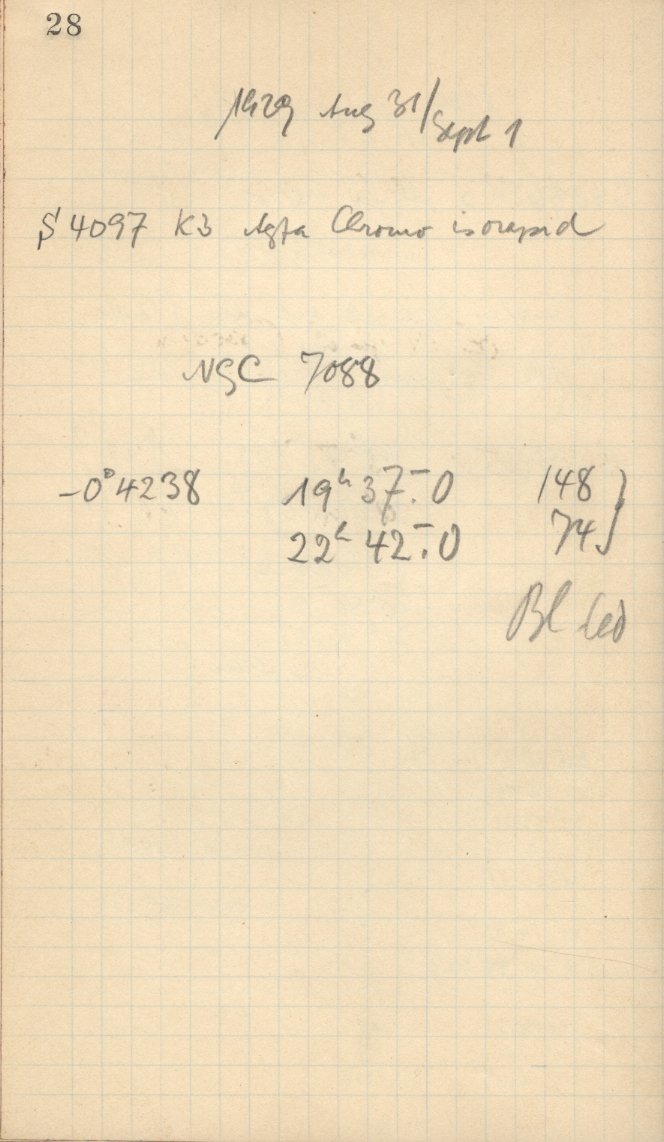 28
1929 Aug 31/Sept 1
S 4097 K3 Agfa Chromo isorapid
NGC 7088
-0°4238 19h 37m.0 148
22h 42m.0 74
Bl